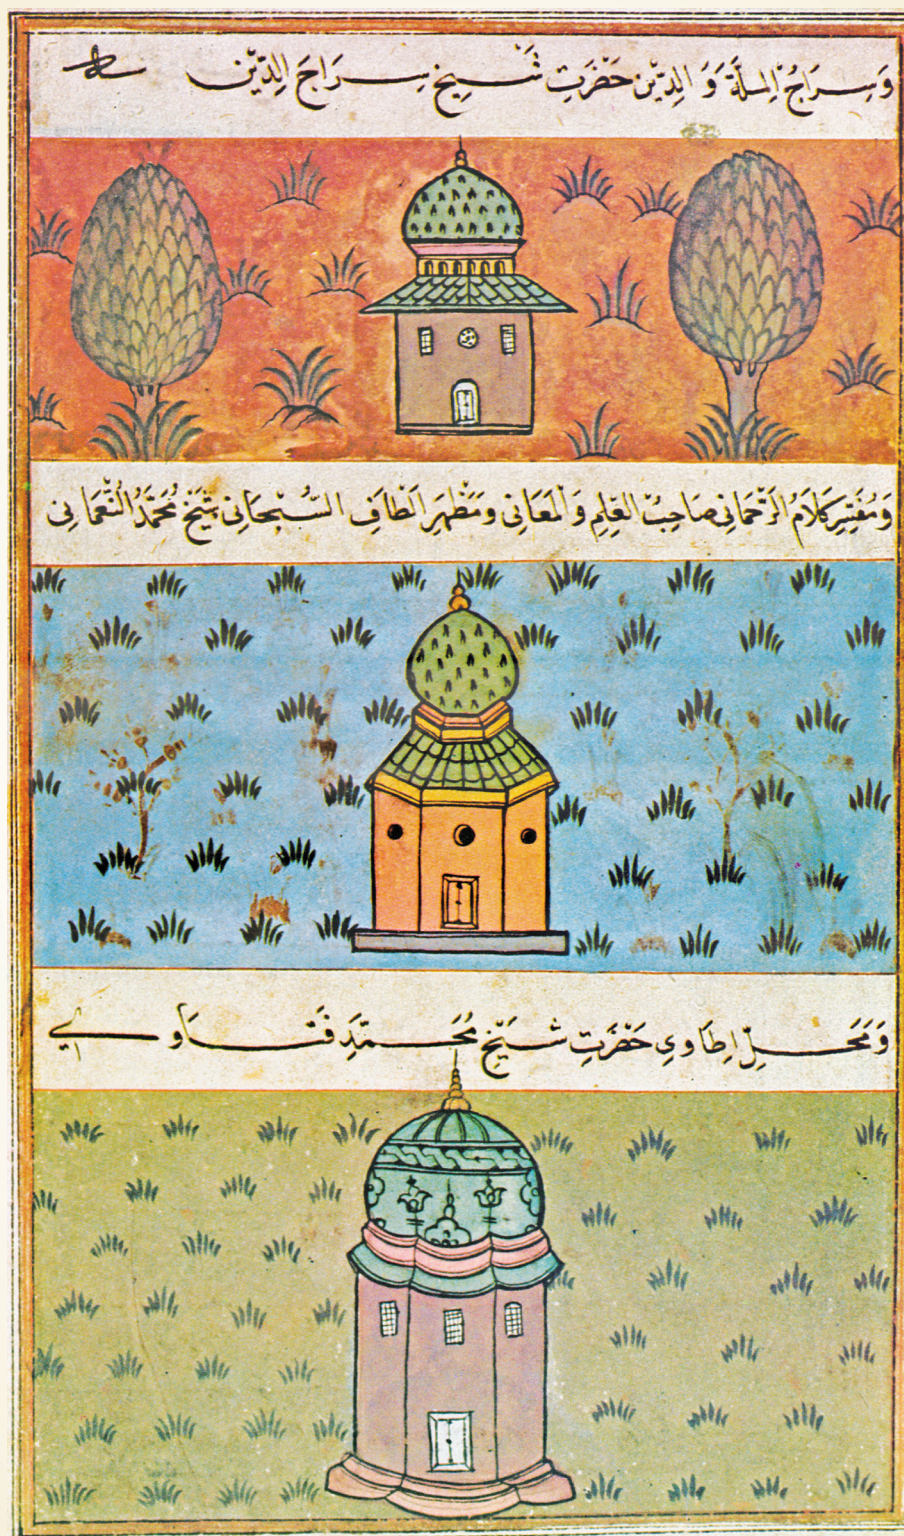 وَسِرَاجُ الْمِلَّةِ وَ الدِّيْن حَضْرَتِ شَيْخ سِرَاجَ الدِّيْن
وَمُفَسِّرِ كَلَامُ الرَّحْمَانِي صَاحِبُ الْعِلِمِ وَ الْمَعَانِي وَمَظْهَرِ اَلْطَافِ السُّبْحَانِي شَيْخ مُحَمَّدُ النُّعْمَانِي
وَمَحَلِّ حَضْرَتِ شَيْخ مُحَمَّدِ فَتَاوِي